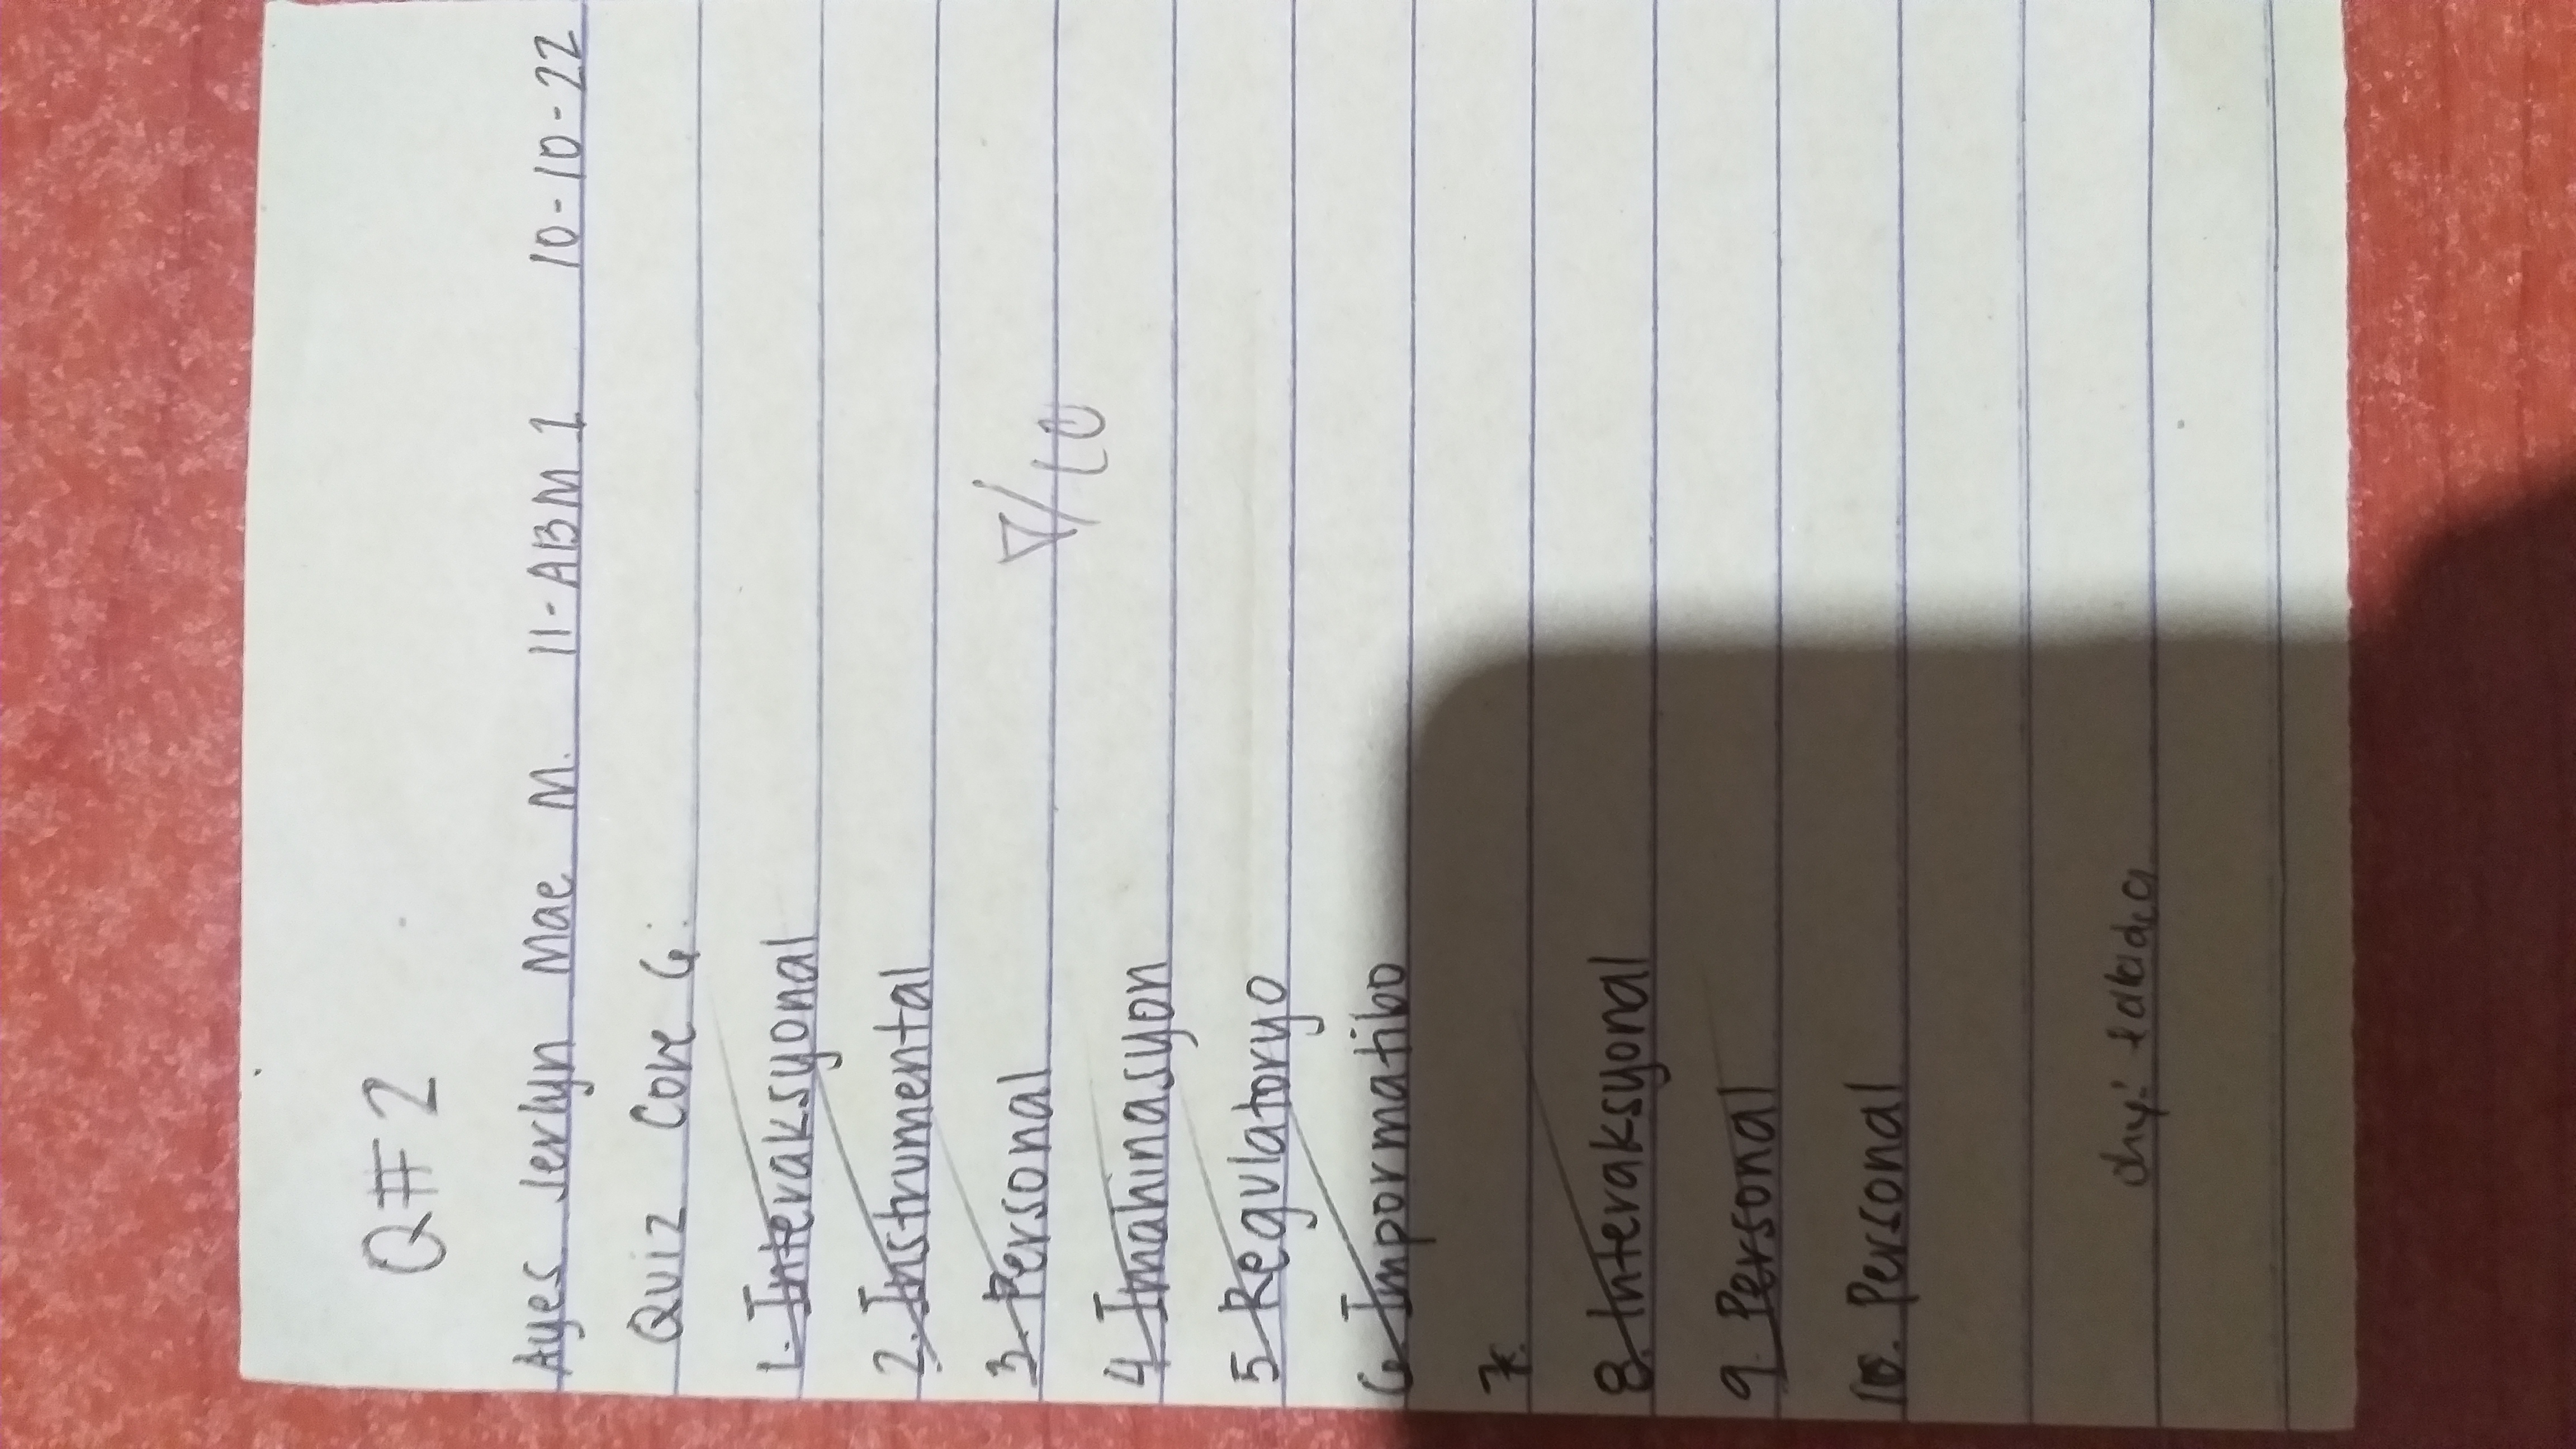 Q#2
Ayes Jerlyn Mae M. 11-ABM 1 10-10-22
Quiz Core 6:
1. Interaksyonal
2. Instrumental
3. Personal
/10
4 Imahinasyon
5 Regulatoryo
6. Impormatibo
7.
8. Interaksyonal
9. Personal
10. Personal